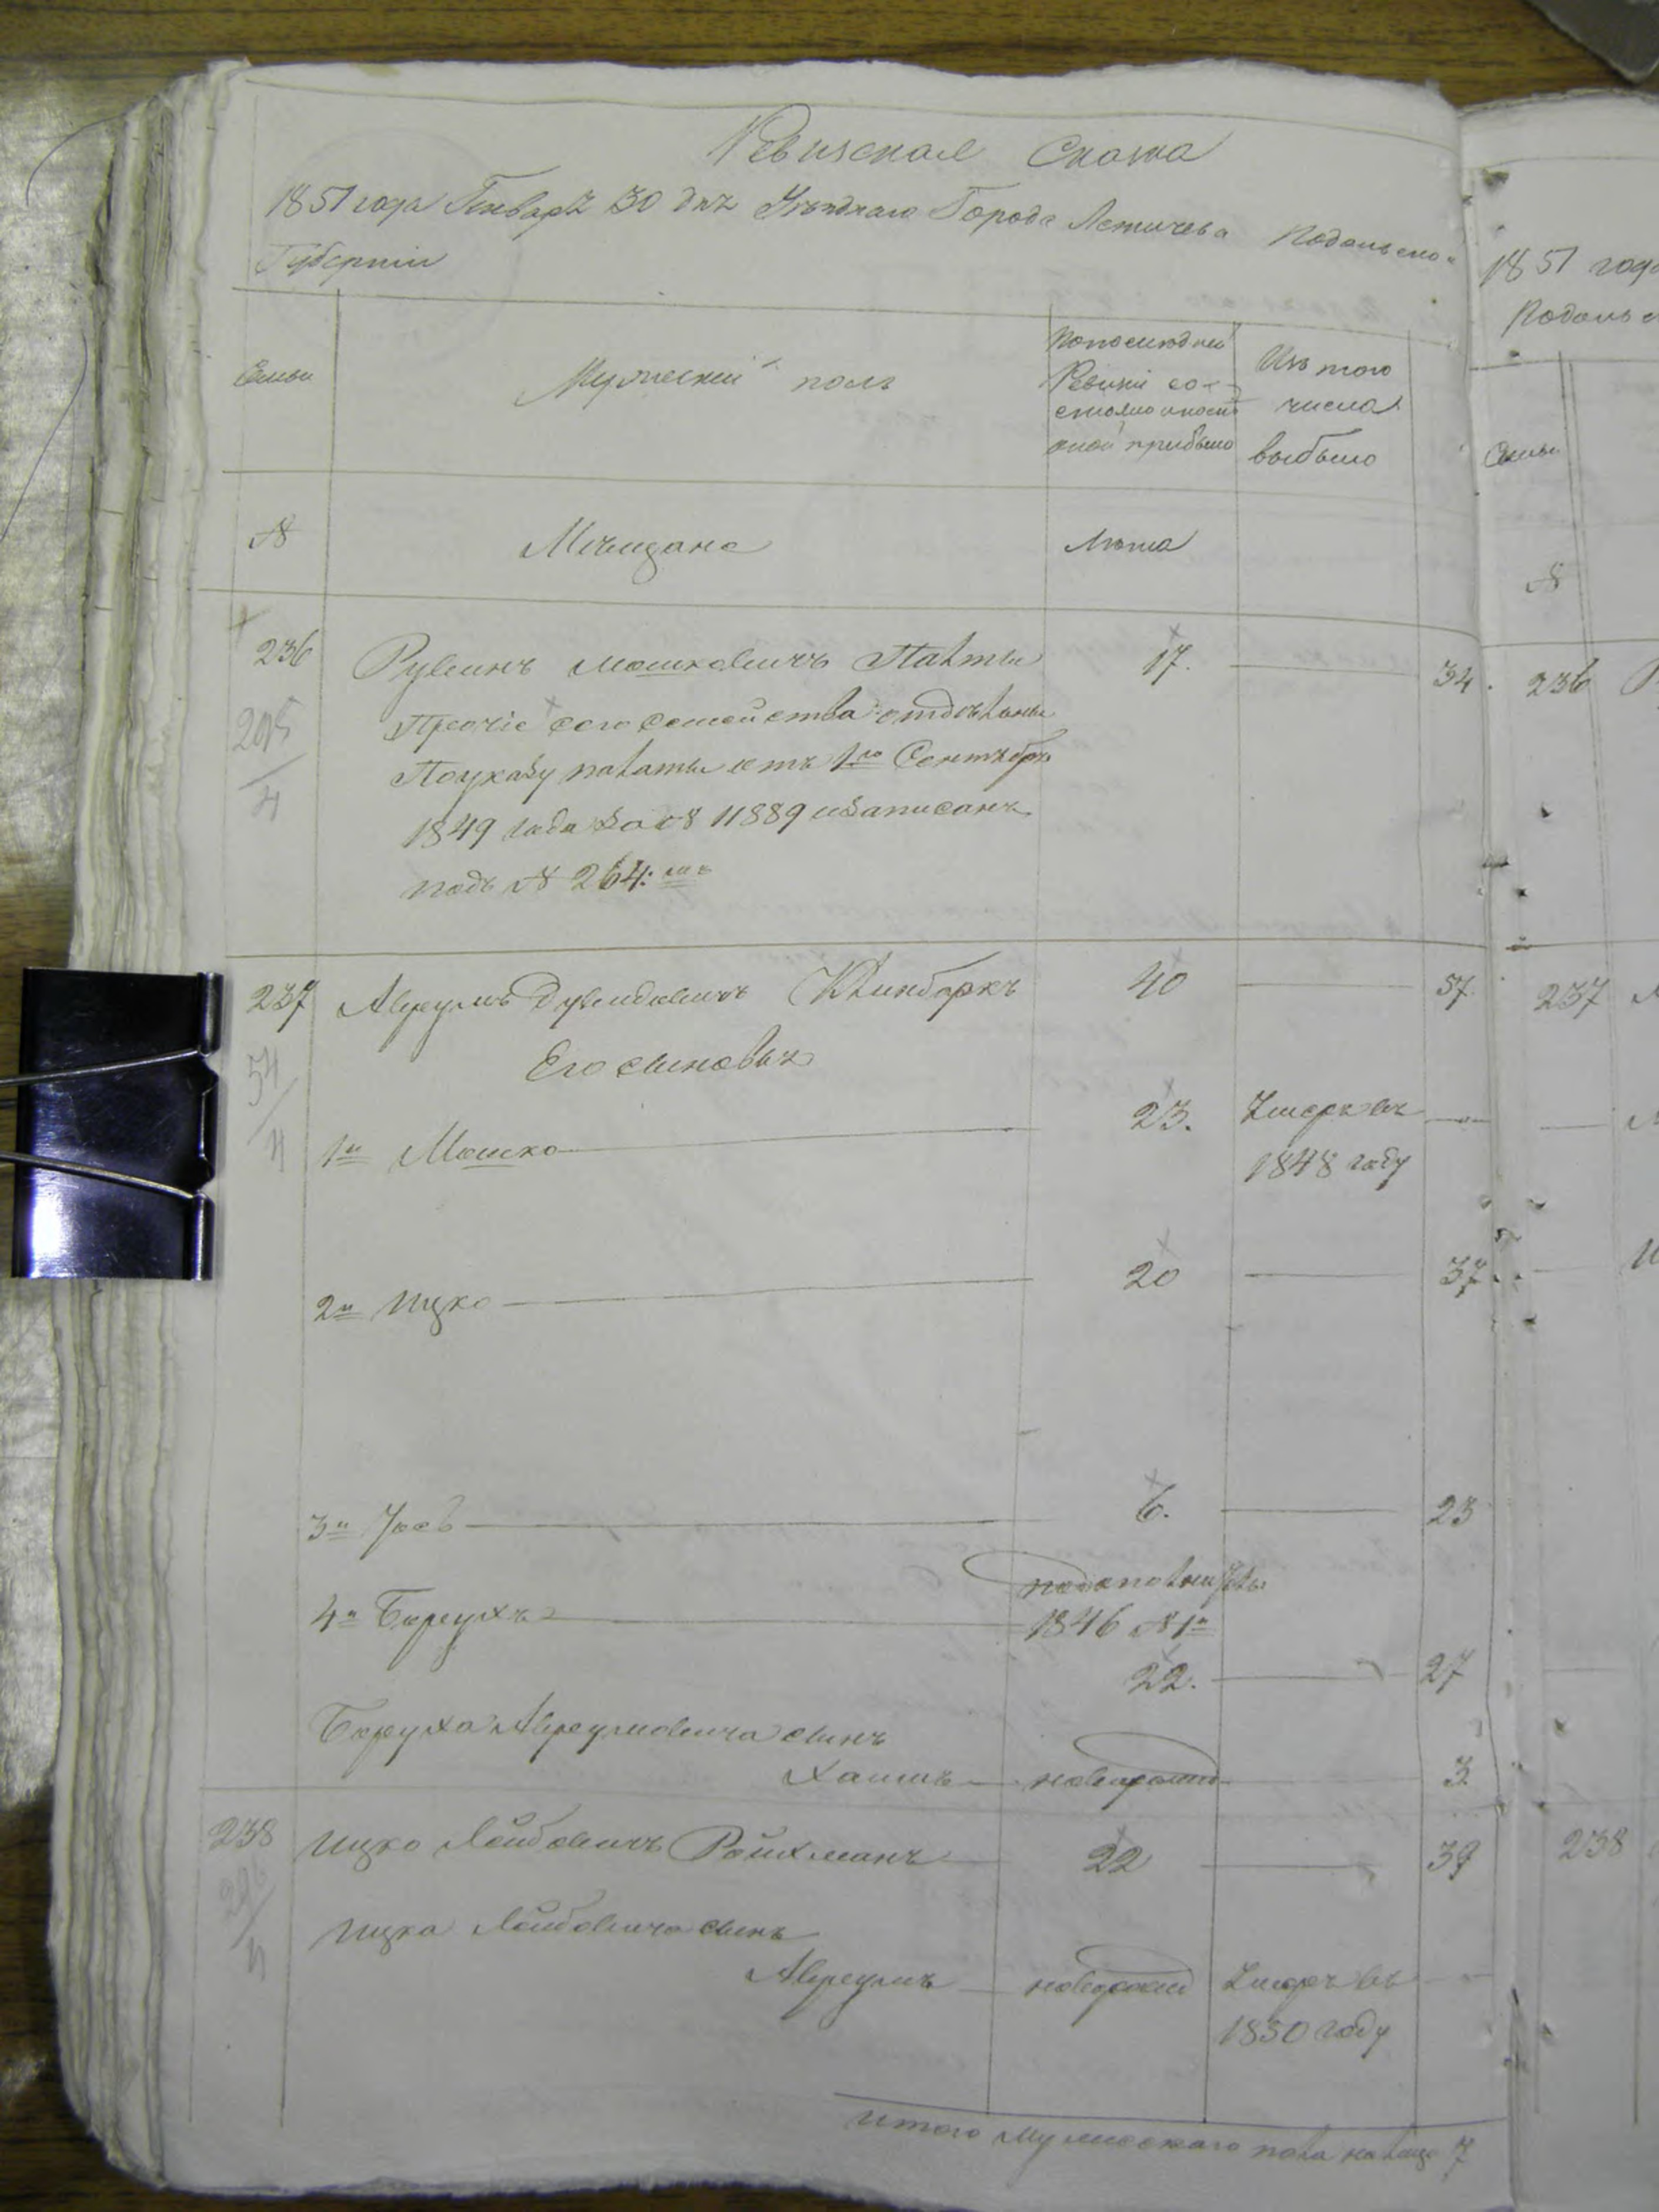 Ревизская Сказка
1851 года Генваря 30 дня Уѣзднаго Города Летичева Подольской
Губерніи
Семьи
Мужескій полъ
По последней
Ревизіи со-
стояло и после
оной прибыло
Изъ того
числа
выбыло
№
Мещане
Лѣта
236
Рувинъ Мошковичъ
17.
34.
205
4
Прочіе сего семейства отдѣлены
По указу палаты отъ 1го Сентября
1849 года за № 11889 и записанъ
подъ № 264:мъ
237
Аврумъ Дувидовичъ Клинбаркъ
40
57
54
4
Его сыновья
1й Мошко
23.
Умеръ въ
1848 году
2й Ицко
20
37.
3й Іосъ
6.
23
4й Борухъ
1846 №1й
22.
27
Боруха Аврумовича сынъ
Хаимъ
новорожд
3
238
Ицко Лейбовичъ Ройхманъ
22
39
4
Ицка Лейбовича сынъ
Аврумъ
новорожд
Умеръ въ
1850 году
Итого мужескаго пола на лицо 7
1851 года
Подольс
Семьи
№
236
237
238